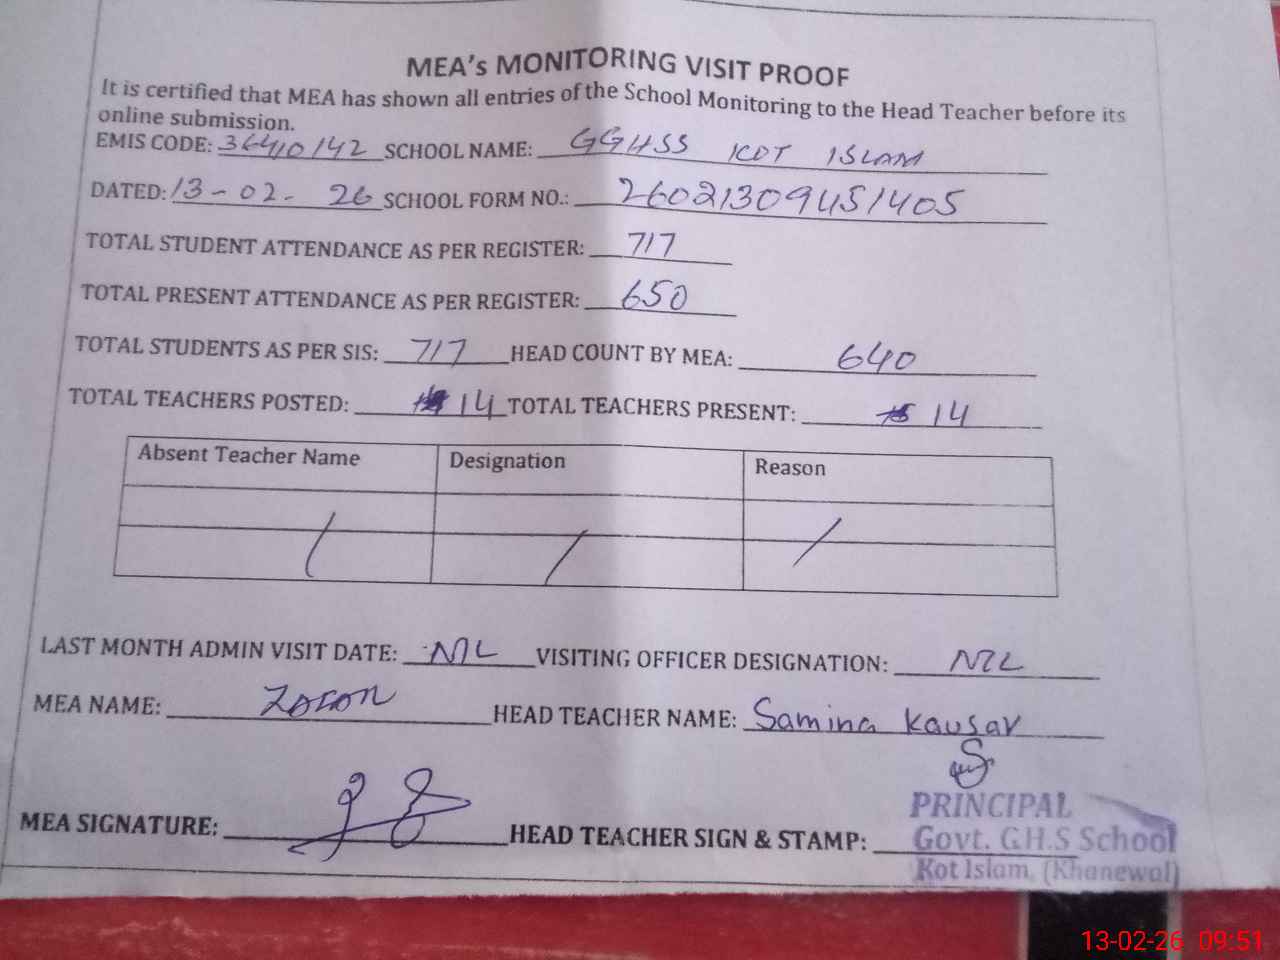 MEA's MONITORING VISIT PROOF
It is certified that MEA has shown all entries of the School Monitoring to the Head Teacher before its
online submission.
EMIS CODE: 36410142 SCHOOL NAME: GGHSS KOT ISLAM
DATED: 13-02-26 SCHOOL FORM NO.: 26021309451405
TOTAL STUDENT ATTENDANCE AS PER REGISTER: 717
TOTAL PRESENT ATTENDANCE AS PER REGISTER: 650
TOTAL STUDENTS AS PER SIS: 717 HEAD COUNT BY MEA: 640
TOTAL TEACHERS POSTED: 14 TOTAL TEACHERS PRESENT: 14
Absent Teacher Name Designation Reason
/ / /
LAST MONTH ADMIN VISIT DATE: NIL VISITING OFFICER DESIGNATION: NIL
MEA NAME: HEAD TEACHER NAME: Samina Kausar
MEA SIGNATURE: HEAD TEACHER SIGN & STAMP:
PRINCIPAL
Govt. G.H.S School
Kot Islam, (Khanewal)
13-02-26 09:51